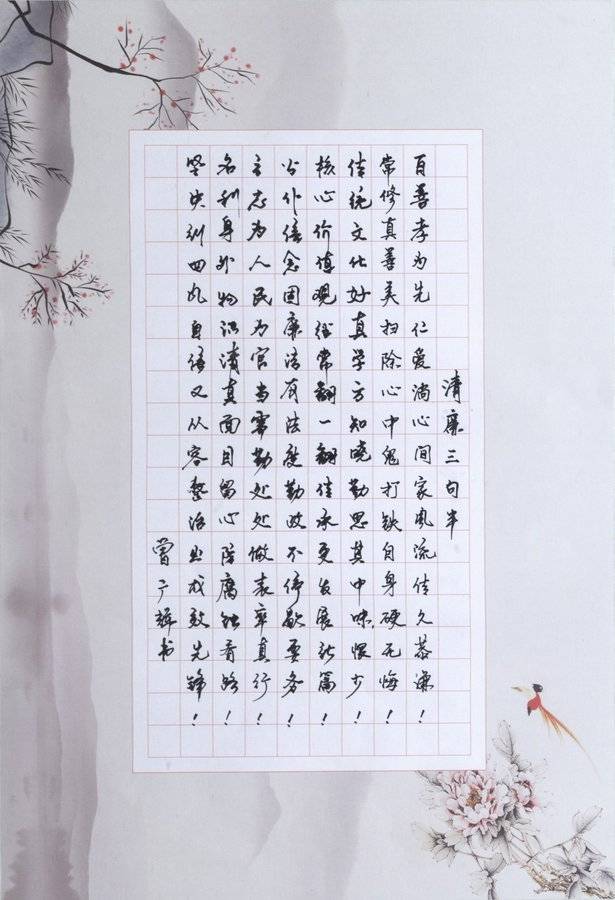 清廉三句半
百善孝为先仁爱淌心间家风流传久恭谦！
常修真善美扫除心中鬼打铁自身硬无悔！
传统文化好真学方知晓勤思其中味恨少！
核心价值观经常翻一翻传承更发展新篇！
公仆信念固廉洁有法度勤政不停歇要务！
立志为人民为官当需勤处处做表率真行！
名利身外物识清真面目留心防腐蚀看路！
坚决纠四风自信又从容整治出成效先锋！
曾广辉书